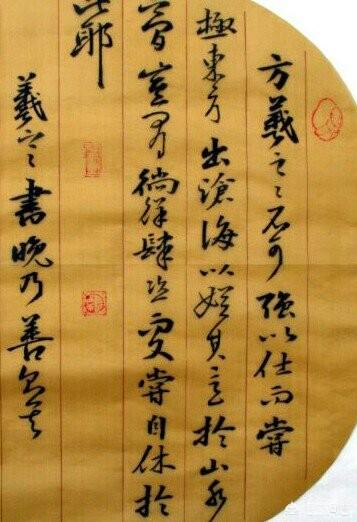 方羲之之不可強以仕而嘗
極東方出滄海以娛其意於山水
間豈有徜徉肆恣又嘗自休於
此耶
羲之之書晚乃善